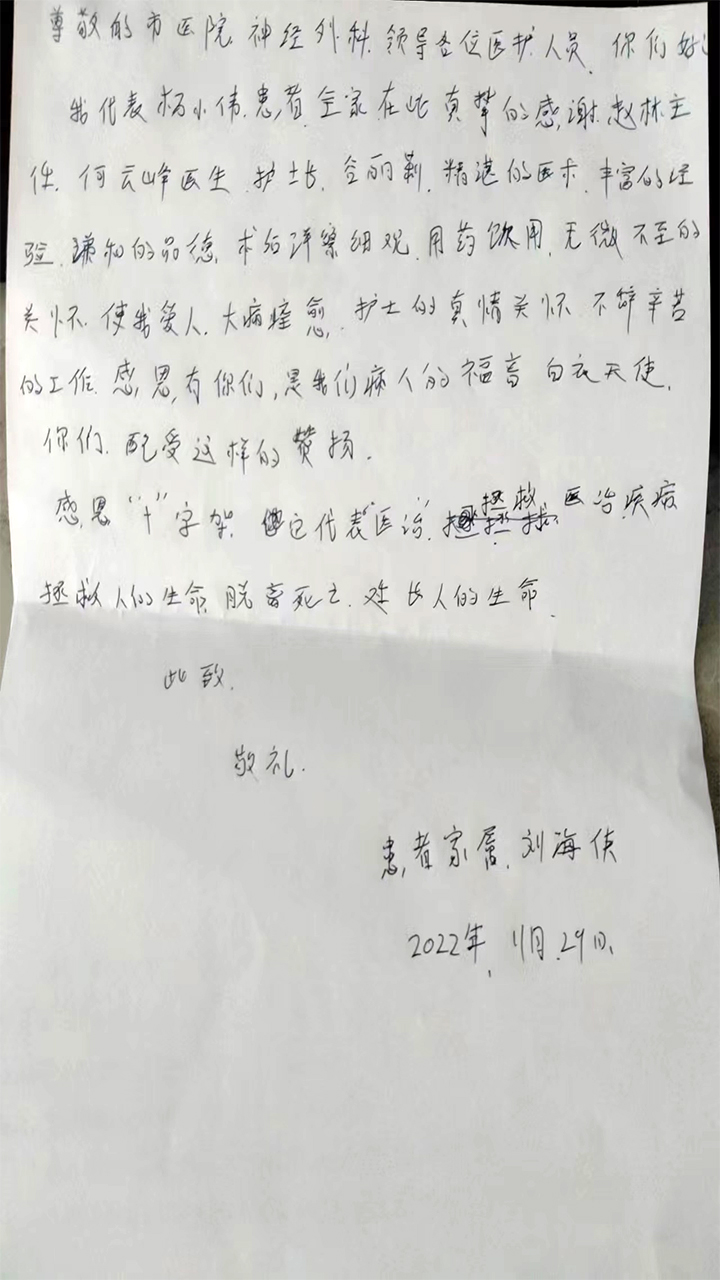 尊敬的市医院.神经外科.领导各位医护人员.你们好
我代表杨小伟.患者.全家.在此真挚的感谢.赵林主
任.何云峰医生.护士长.仝丽莉.精湛的医术.丰富的经
验.谦和的品德.术后详察细观.用药饮用.无微不至的
关怀.使我爱人.大病痊愈.护士的真情关怀.不辞辛苦
的工作.感恩,有你们,是我们病人的福音白衣天使.
你们.配受这样的赞扬.
感恩"十"字架.它代表"医治",拯救.医治.疾病
拯救人的生命,脱离死亡.延长人的生命.
此致.
敬礼.
患者家属.刘海侠
2022年.11月.29日.